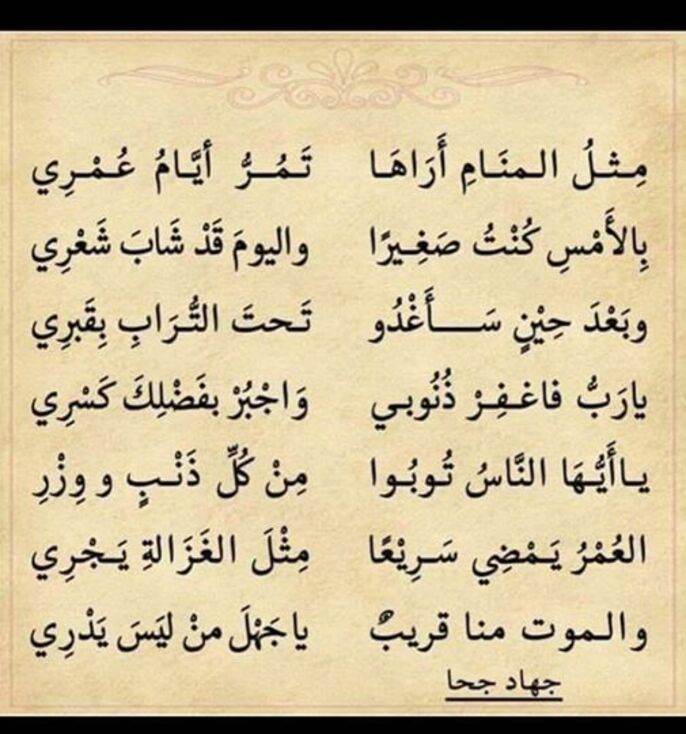 مِـثـلُ الـمنَـامِ أَرَاهَـا تَـمُـرُّ أيَّـامُ عُـمْـرِي
بِالأَمْسِ كُنْتُ صَغِـيرًا واليومَ قَدْ شَابَ شَعْرِي
وبَعْدَ حِيْنٍ سَــــأَغْدُو تَـحتَ التُّـرَابِ بِقَبرِي
يارَبُّ فاغـفِـرْ ذُنُوبـي وَاجْبُرْ بفَضْلِكَ كَسْرِي
يـاأَيُّـهَا النَّاسُ تُـوبُـوا مِنْ كُلِّ ذَنْـبٍ و وِزْرِ
العُمْرُ يَـمْضِي سَـرِيْعًا مِثْلَ الغَزَالةِ يَـجْرِي
والـموت منا قريبٌ ياجَهْلَ منْ ليَسَ يَدْرِي
جهاد جحا